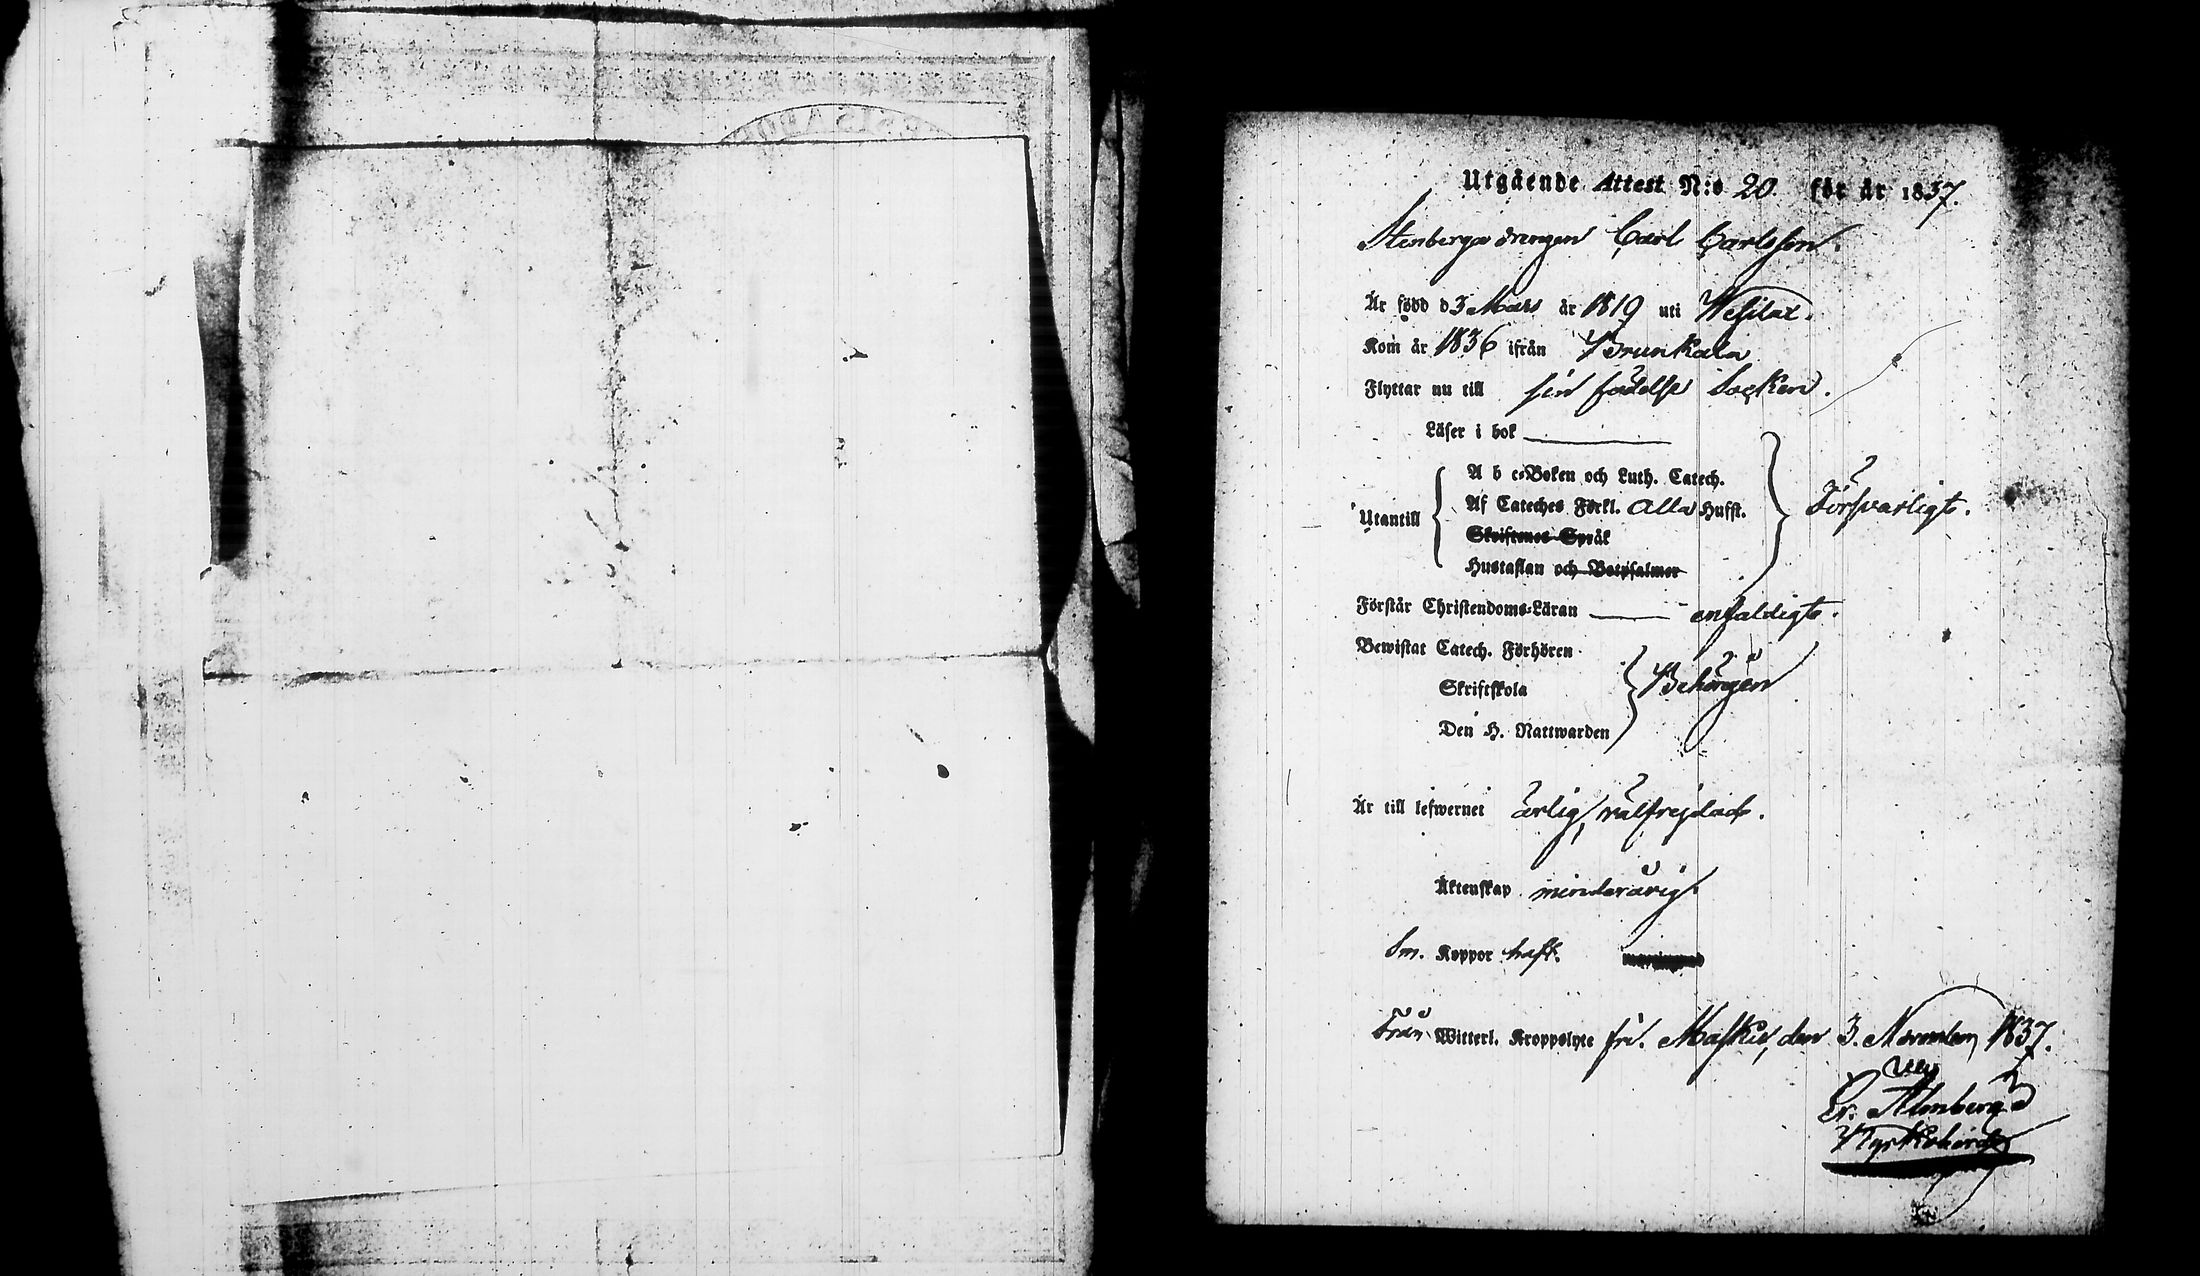 Utgående Attest N:o 20 för år 1837.
Stenberga drengen Carl Carlsson.
Är född d 3 Mars år 1819 uti Wesilax.
Kom år 1836 ifrån Brunkala
Flyttar nu till sin födelse Socken.
Läser i bok
A b c-Boken och Luth. Catech.
Utantill Af Cateches Förkl. Alla Husst. Försvarligt.
Skriftenes Språk
Hustaflan och Botpsalmer
Förstår Christendoms-Läran enfaldigt.
Bewistat Catech. Förhören
Skriftskola Behörigen
Den H. Nattwarden
Är till lefwernet ärlig, välfrejdad.
Äktenskap minderårig.
Sm. Koppor haft.
Från Witterl. Kroppslyte fri. Masku, den 3. November 1837.
Er. Almberg
Kyrkoherde